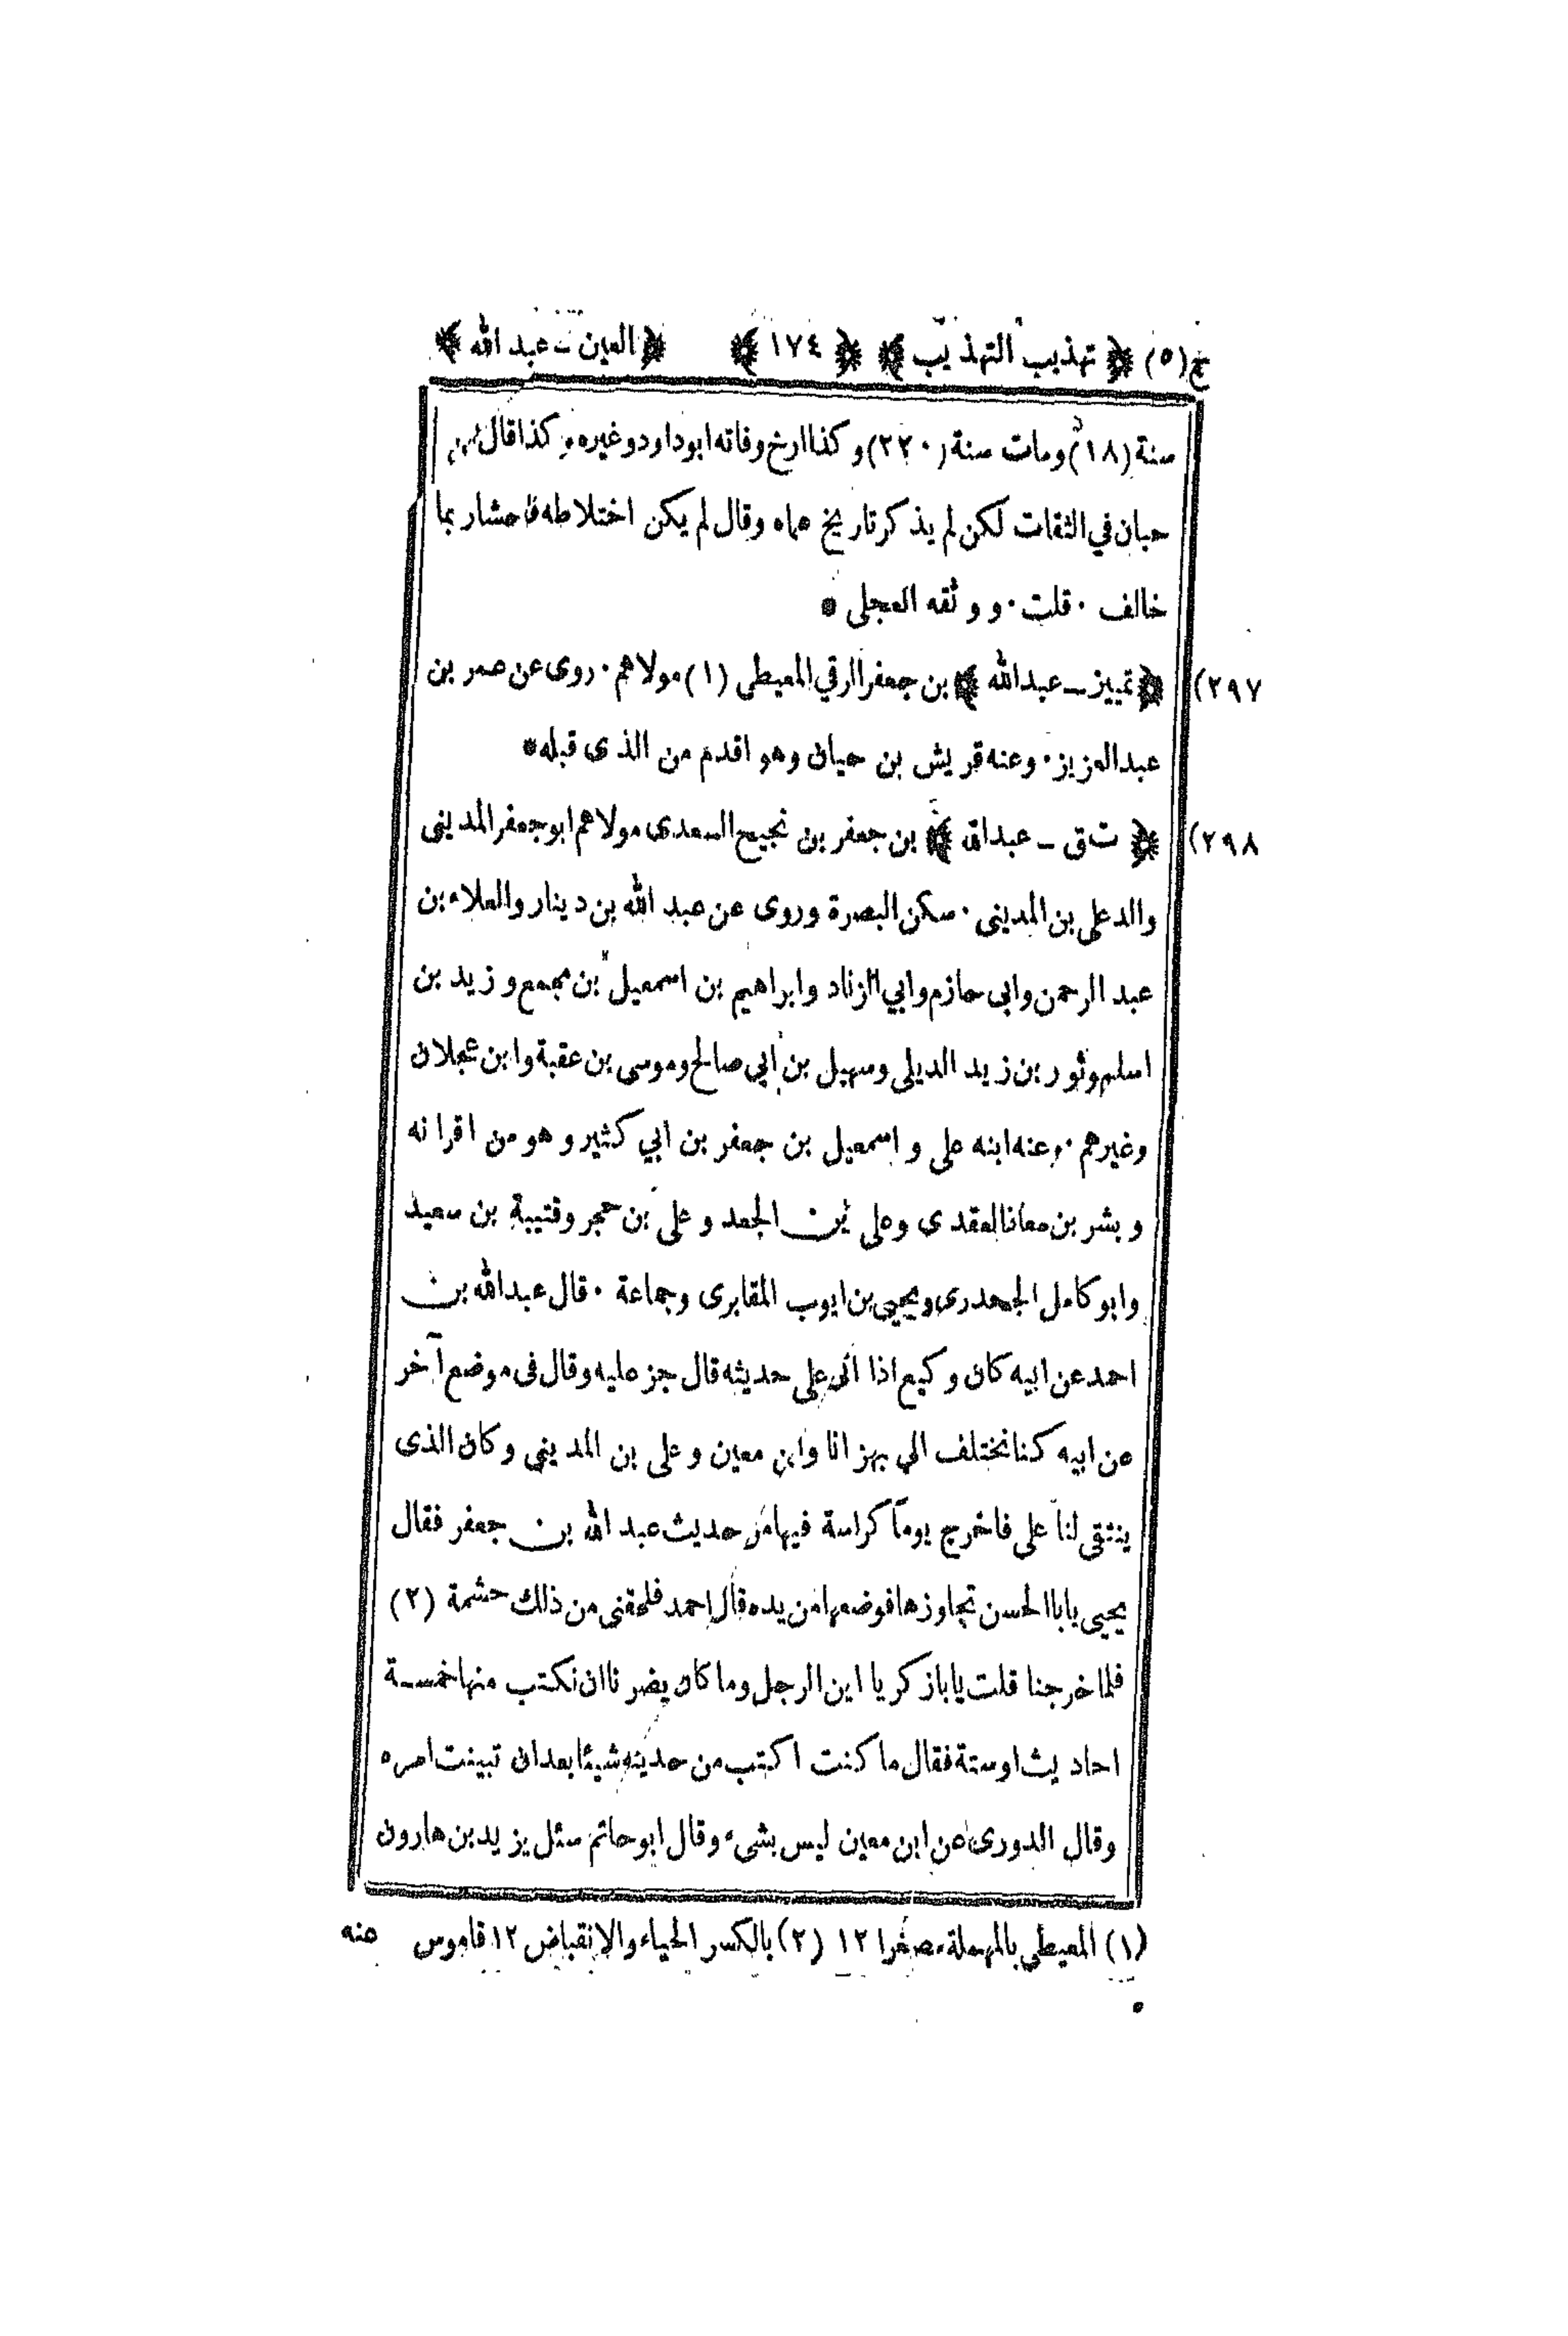 ج(٥) ﴿ تهذيب التهذيب ﴾ ﴿ ١٧٤ ﴾ ﴿ العين - عبد الله ﴾
سنة (١٨) ومات سنة (٢٢٠) وكذا ارخ وفاته ابو داود وغيره وكذا قال ابن
حبان في الثقات لكن لم يذكر تاريخ عماه وقال لم يكن اختلاطه فاحشا ربما
خالف ٠ قلت ٠ ووثقه العجلى *
٢٩٧) ﴿ تمييز - عبد الله ﴾ بن جعفر الرقي المعيطى (١) مولاهم ٠ روى عن عمر بن
عبد العزيز ٠ وعنه قريش بن حيان وهو اقدم من الذى قبله *
٢٩٨) ﴿ ت ق - عبد الله ﴾ بن جعفر بن نجيح السعدى مولاهم ابو جعفر المدينى
والد على بن المدينى ٠ سكن البصرة وروى عن عبد الله بن دينار والعلاء بن
عبد الرحمن وابى حازم وابي الزناد وابراهيم بن اسمعيل بن مجمع وزيد بن
اسلم وثور بن زيد الديلى وسهيل بن ابي صالح وموسى بن عقبة وابن عجلان
وغيرهم ٠ وعنه ابنه على واسمعيل بن جعفر بن ابي كثير وهو من اقرانه
وبشر بن معاذ العقدى وعلى بن الجعد وعلى بن حجر وقتيبة بن سعيد
وابو كامل الجحدرى ويحيى بن ايوب المقابرى وجماعة ٠ قال عبد الله بن
احمد عن ابيه كان وكيع اذا اتى على حديثه قال جز عليه وقال فى موضع آخر
عن ابيه كنا نختلف الى بهز انا وابن معين وعلى بن المدينى وكان الذى
ينتقى لنا على فاخرج يوما كراسة فيها من حديث عبد الله بن جعفر فقال
يحيى يا با الحسن تجاوزها فوضعها من يده قال احمد فلحقنى من ذلك حشمة (٢)
فلما خرجنا قلت يا با زكريا اين الرجل وما كان يضرنا ان نكتب منها خمسة
احاديث اوستة فقال ما كنت اكتب من حديثه شيئا بعد ان تبينت امره
وقال الدورى عن ابن معين ليس بشىء وقال ابو حاتم سئل يزيد بن هارون
(١) المعيطى بالمهملة مصغرا ١٢ (٢) بالكسر الحياء والانقباض ١٢ قاموس منه